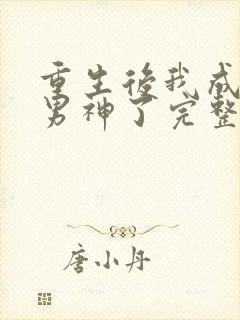 重生後我成
男神了完整
唐小丹